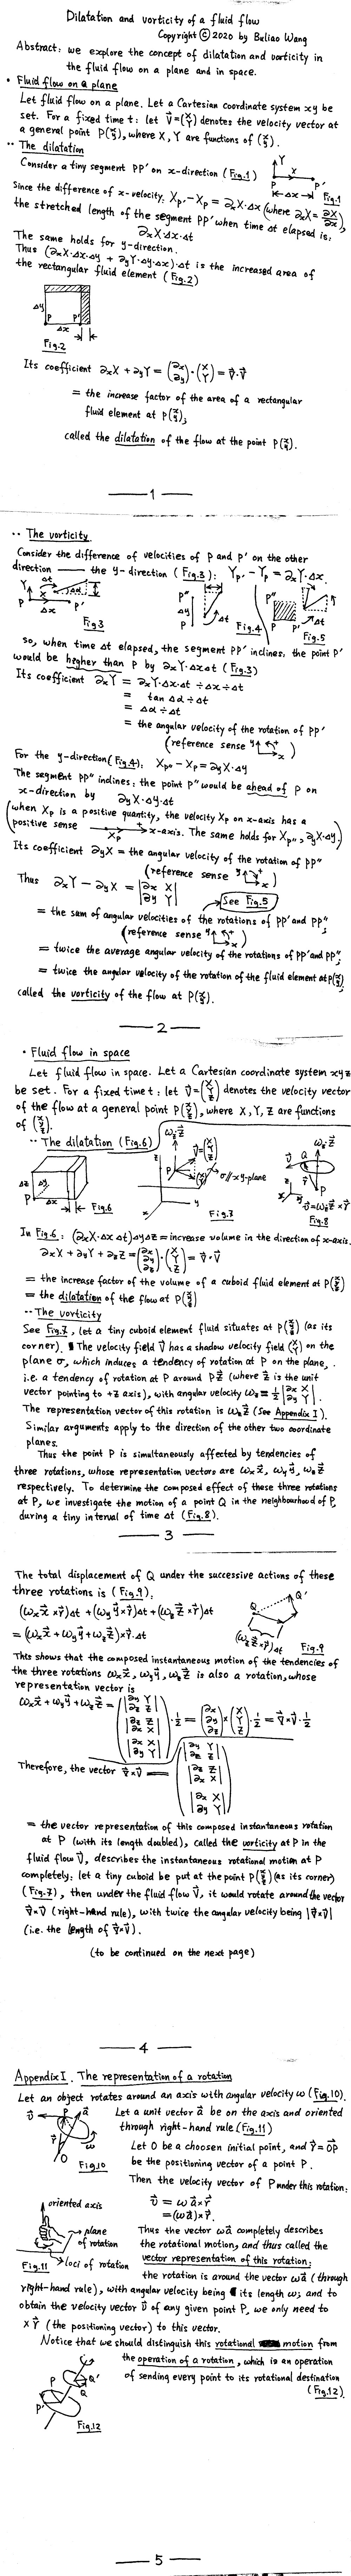 Dilatation and vorticity of a fluid flow
Copyright © 2020 by Beliao Wang
Abstract: we explore the concept of dilatation and vorticity in
the fluid flow on a plane and in space.
• Fluid flow on a plane
Let fluid flow on a plane. Let a Cartesian coordinate system xy be
set. For a fixed time t: let V⃗=(X Y) denotes the velocity vector at
a general point P(x y), where X, Y are functions of (x y).
·· The dilatation
Consider a tiny segment PP' on x-direction (Fig.1)
Since the difference of x-velocity: X_P' - X_P = ∂xX·Δx (where ∂xX = ∂X/∂x),
the stretched length of the segment PP' when time Δt elapsed is:
∂xX·Δx·Δt
Fig.1
The same holds for y-direction.
Thus (∂xX·Δx·Δy + ∂yY·Δy·Δx)·Δt is the increased area of
the rectangular fluid element (Fig.2)
Δy
P P'
Δx
Fig.2
Its coefficient ∂xX + ∂yY = (∂x ∂y)·(X Y) = ∇⃗·V⃗
= the increase factor of the area of a rectangular
fluid element at P(x y);
called the dilatation of the flow at the point P(x y).
— 1 —
·· The vorticity
Consider the difference of velocities of P and P' on the other
direction — the y-direction (Fig.3): Y_P' - Y_P = ∂xY·Δx
Fig.3
Fig.4
Fig.5
so, when time Δt elapsed, the segment PP' inclines: the point P'
would be hegher than P by ∂xY·ΔxΔt (Fig.3)
Its coefficient ∂xY = ∂xY·Δx·Δt ÷ Δx ÷ Δt
= tan Δα ÷ Δt
= Δα ÷ Δt
= the angular velocity of the rotation of PP'
(reference sense y x)
For the y-direction (Fig.4): X_P'' - X_P = ∂yX·Δy
The segment PP'' inclines: the point P'' would be ahead of P on
x-direction by ∂yX·Δy·Δt
(when X_P is a positive quantity, the velocity X_P on x-axis has a
positive sense X_P x-axis. The same holds for X_P'', ∂yX·Δy.)
Its coefficient ∂yX = the angular velocity of the rotation of PP''
(reference sense y x)
Thus ∂xY - ∂yX = |∂x X ∂y Y| See Fig.5
= the sum of angular velocities of the rotations of PP' and PP'',
(reference sense y x)
= twice the average angular velocity of the rotations of PP' and PP'',
= twice the angular velocity of the rotation of the fluid element at P(x y),
called the vorticity of the flow at P(x y).
— 2 —
• Fluid flow in space
Let fluid flow in space. Let a Cartesian coordinate system xyz
be set. For a fixed time t: let V⃗=(X Y Z) denotes the velocity vector
of the flow at a general point P(x y z), where X, Y, Z are functions
of (x y z).
·· The dilatation (Fig.6)
Fig.6
σ // xy-plane
Fig.7
Fig.8
In Fig.6: (∂xX·Δx Δt)ΔyΔz = increase volume in the direction of x-axis.
∂xX + ∂yY + ∂zZ = (∂x ∂y ∂z)·(X Y Z) = ∇⃗·V⃗
= the increase factor of the volume of a cuboid fluid element at P(x y z)
= the dilatation of the flow at P(x y z)
·· The vorticity
See Fig.7, let a tiny cuboid element fluid situates at P(x y z) (as its
corner). The velocity field V⃗ has a shadow velocity field (X Y) on the
plane σ, which induces a tendency of rotation at P on the plane,
i.e. a tendency of rotation at P around Pz⃗ (where z⃗ is the unit
vector pointing to +z axis), with angular velocity ωz = ½|∂x X ∂y Y|.
The representation vector of this rotation is ωz z⃗ (See Appendix I).
Similar arguments apply to the direction of the other two coordinate
planes.
Thus the point P is simultaneously affected by tendencies of
three rotations, whose representation vectors are ωx x⃗, ωy y⃗, ωz z⃗
respectively. To determine the composed effect of these three rotations
at P, we investigate the motion of a point Q in the neighbourhood of P,
during a tiny interval of time Δt (Fig.8).
— 3 —
The total displacement of Q under the successive actions of these
three rotations is (Fig.9):
(ωx x⃗ × r⃗)Δt + (ωy y⃗ × r⃗)Δt + (ωz z⃗ × r⃗)Δt
= (ωx x⃗ + ωy y⃗ + ωz z⃗) × r⃗·Δt
Q Q'
(ωz z⃗ × r⃗)Δt
Fig.9
This shows that the composed instantaneous motion of the tendencies of
the three rotations ωx x⃗, ωy y⃗, ωz z⃗ is also a rotation, whose
representation vector is
ωx x⃗ + ωy y⃗ + ωz z⃗ = (|∂y Y ∂z Z| |∂z Z ∂x X| |∂x X ∂y Y|)·½ = (∂x ∂y ∂z)×(X Y Z)·½ = ∇⃗×V⃗·½
Therefore, the vector ∇⃗×V⃗ = (|∂y Y ∂z Z| |∂z Z ∂x X| |∂x X ∂y Y|)
= the vector representation of this composed instantaneous rotation
at P (with its length doubled), called the vorticity at P in the
fluid flow V⃗, describes the instantaneous rotational motion at P
completely: let a tiny cuboid be put at the point P(x y z) (as its corner)
(Fig.7), then under the fluid flow V⃗, it would rotate around the vector
∇⃗×V⃗ (right-hand rule), with twice the angular velocity being |∇⃗×V⃗|
(i.e. the length of ∇⃗×V⃗).
(to be continued on the next page)
— 4 —
Appendix I. The representation of a rotation
Let an object rotates around an axis with angular velocity ω (Fig.10).
Let a unit vector a⃗ be on the axis and oriented
through right-hand rule (Fig.11)
Let O be a choosen initial point, and r⃗ = OP
be the positioning vector of a point P.
Fig.10
Then the velocity vector of P under this rotation:
v⃗ = ω a⃗ × r⃗
= (ωa⃗) × r⃗.
oriented axis
plane
of rotation
loci of rotation
Fig.11
Thus the vector ωa⃗ completely describes
the rotational motion, and thus called the
vector representation of this rotation:
the rotation is around the vector ωa⃗ (through
right-hand rule), with angular velocity being its length ω; and to
obtain the velocity vector v⃗ of any given point P, we only need to
× r⃗ (the positioning vector) to this vector.
Notice that we should distinguish this rotational motion from
the operation of a rotation, which is an operation
of sending every point to its rotational destination
(Fig.12).
P Q'
P' Q
Fig.12
— 5 —